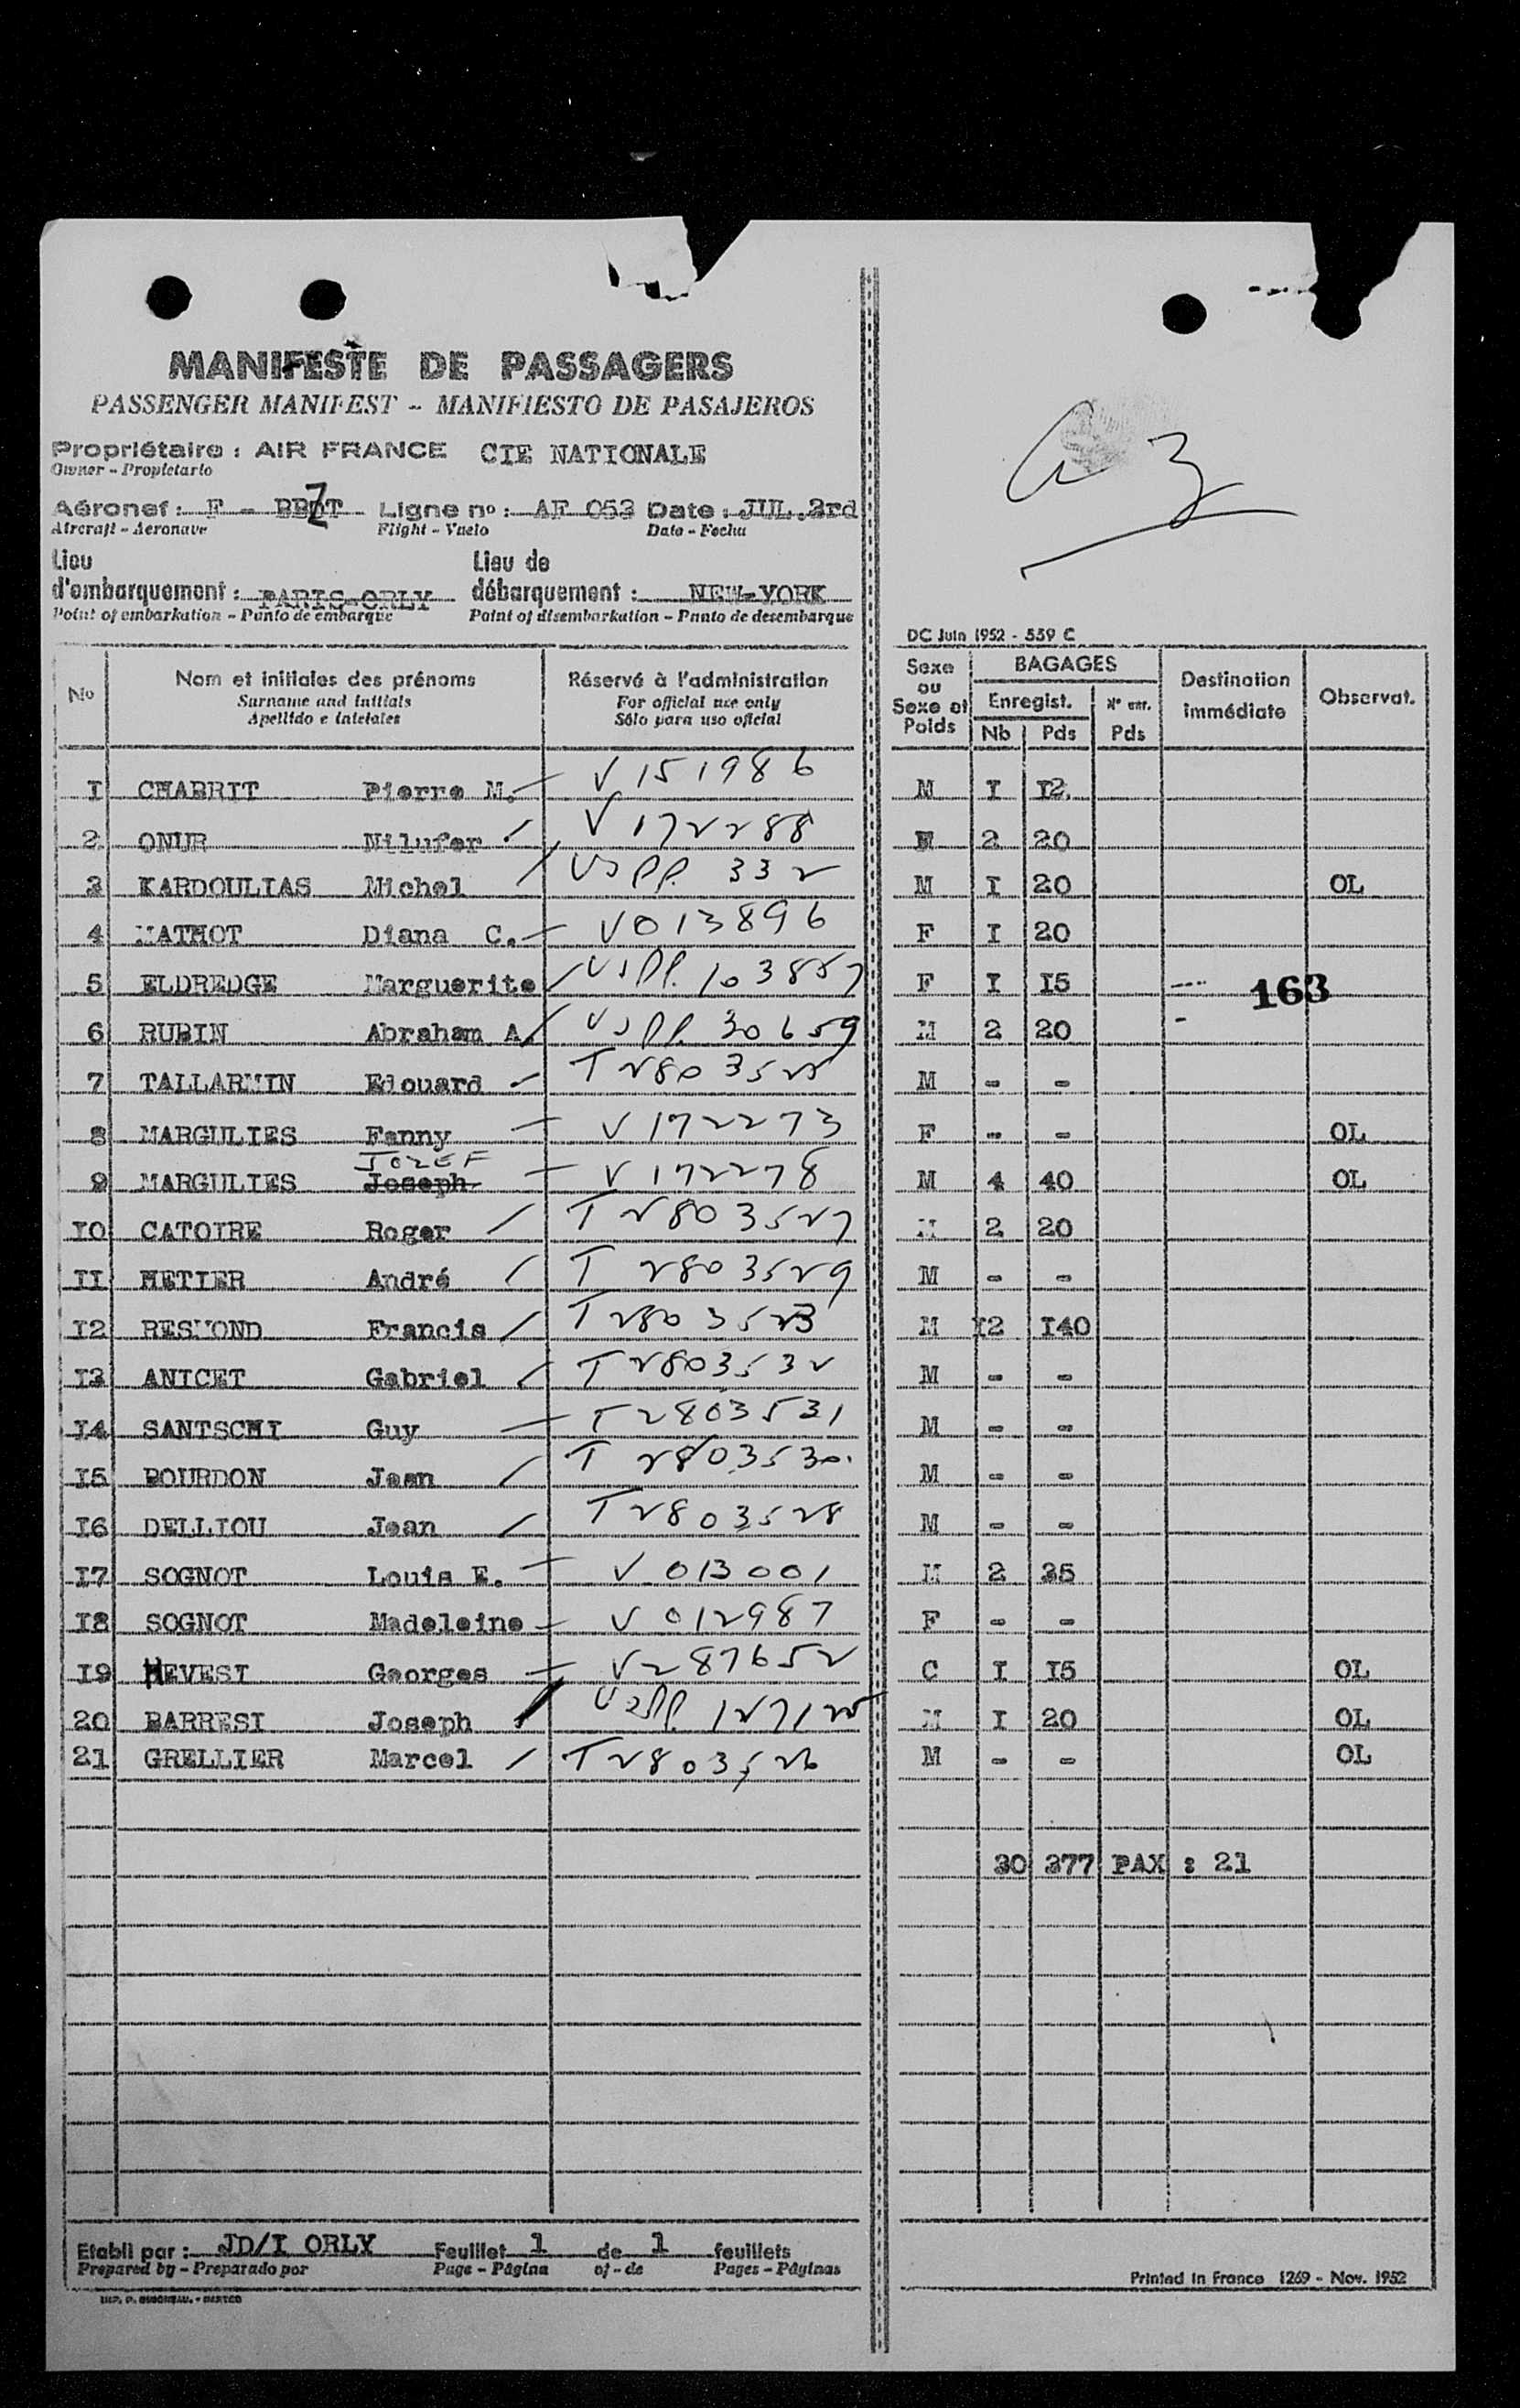 MANIFESTE DE PASSAGERS
PASSENGER MANIFEST - MANIFIESTO DE PASAJEROS
Propriétaire : AIR FRANCE CIE NATIONALE
Owner - Propietario
Aéronef : F - Ligne nº : AF 053 Date : JUL.3rd
Aircraft - Aeronave Flight - Vuelo Date - Fecha
Lieu d'embarquement : PARIS-ORLY Lieu de débarquement : NEW-YORK
Point of embarkation - Punto de embarque Point of disembarkation - Punto de desembarque
DC Juin 1952 - 559 C
No Nom et initiales des prénoms Réservé à l'administration Sexe ou Sexe et Poids BAGAGES Destination immédiate Observat.
Surname and initials For official use only Enregist. Nº enr.
Apellido e iniciales Sólo para uso oficial Nb Pds Pds
1 CHABRIT Pierre M. V 151986 M I 12
2 ONUR Nilufer V 172288 2 20
3 KARDOULIAS Michel USPP. 332 M I 20 OL
4 MATHOT Diana C. V013896 F I 20
5 ELDREDGE Marguerite USPP. F I 15 ---
163
6 RUBIN Abraham A. USPP. 30659 M 2 20 -
7 TALLARMIN Edouard M - -
8 MARGULIES Fanny V 172273 F - - OL
JOZEF
9 MARGULIES Joseph V 172278 M 4 40 OL
10 CATOIRE Roger T 2803527 M 2 20
11 METIER André T 2803529 M - -
12 RESMOND Francis M 12 140
13 ANICET Gabriel T 2803532 M - -
14 SANTSCHI Guy T 2803531 M - -
15 BOURDON Jean T 2803530. M - -
16 DELLIOU Jean T 2803528 M - -
17 SOGNOT Louis E. V 013001 M 2 35
18 SOGNOT Madeleine V 012987 F - -
19 HEVESI Georges V287652 C I 15 OL
20 BARRESI Joseph USPP. M I 20 OL
21 GRELLIER Marcel T2803526 M - - OL
30 377 PAX : 21
Etabli par : JD/I ORLY Feuillet 1 de 1 feuillets
Prepared by - Preparado por Page - Página of - de Pages - Páginas
Printed in France 1269 - Nov. 1952